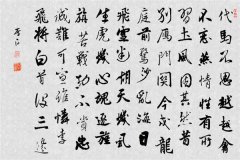 代馬不思越越禽
不恋燕情性有所
習土風固其然昔
别雁門關今戍龍
庭前驚沙亂海日
飛雪迷胡天蟣虱
生虎鶡心魂逐旌
旃苦戰功不賞忠
誠難可宣誰憐李
飛將白首没三邊